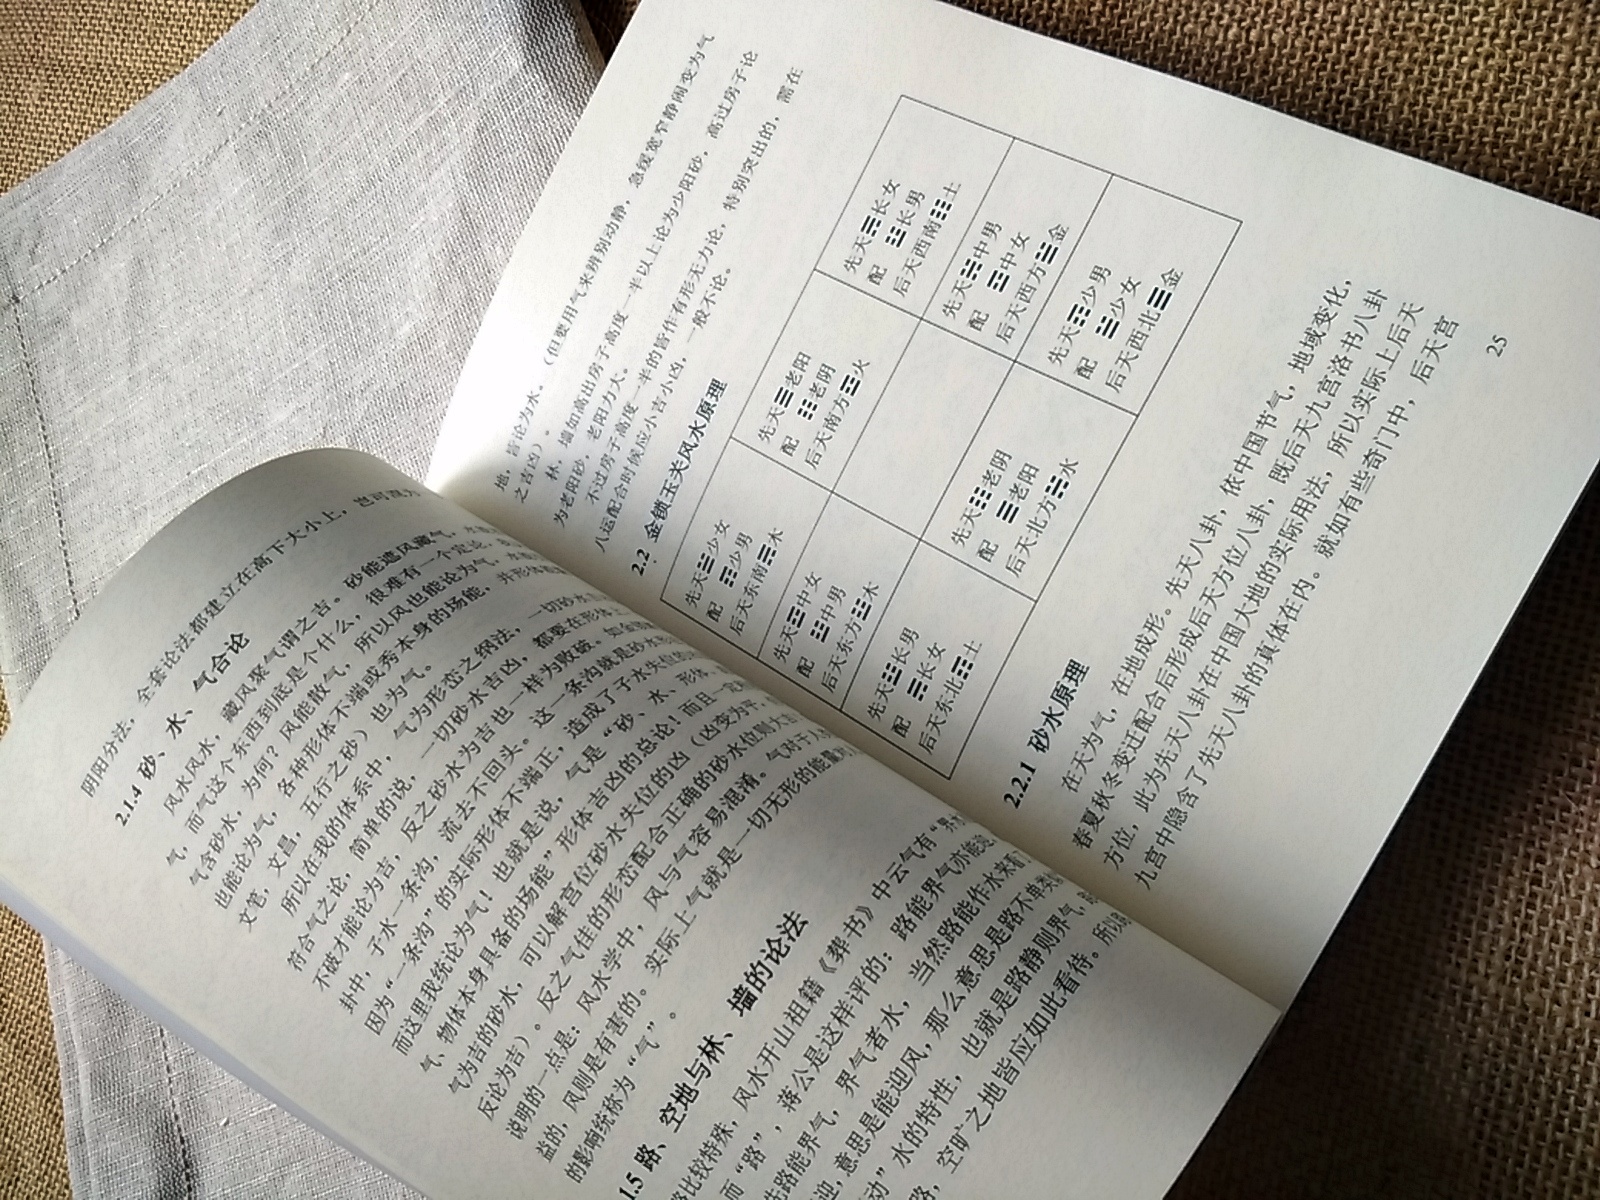 阴阳分法，全套论法都建立在高下大小上，岂可混为
2.1.4 砂、水、气合论
风水风水，藏风聚气谓之吉。砂能遮风藏气，
气，而气这个东西到底是个什么，很难有一个定论，
气含砂水，为何？风能散气，所以风也能论为气，
也能论为气，各种形体不端或秀本身的场能，
文笔，文昌，五行之砂）也为气。
所以在我的体系中，气为形峦之纲法，一切砂水
符合气之论，简单的说，一切砂水吉凶，都要在形体上
不破才能论为吉，反之砂水为吉也一样为败破。
卦中，子水一条沟，流去不回头。这一条沟就是砂水形
因为“一条沟”的实际形体不端正，造成了子水失位的
而这里我统论为气！也就是说，气是“砂、水、形体、
气、物体本身具备的场能”形体吉凶的总论！而且一定
气为吉的砂水，可以解宫位砂水失位的凶（凶变为平，
反论为吉）。反之气佳的形峦配合正确的砂水位则大吉
说明的一点是：风水学中，风与气容易混淆。气对于人
益的，风则是有害的。实际上气就是一切无形的能量对
的影响统称为“气”。
1.5 路、空地与林、墙的论法
路比较特殊，风水开山祖籍《葬书》中云气有“界水
而“路”，蒋公是这样评的：路能界气亦能
先路能界气，界气者水，当然路能作水来看
迎，意思是能迎风，那么意思是路不单类
动”水的特性，也就是路静则界气，
路，空旷之地皆应如此看待。所以
地，皆论为水。（但要用气来辨别动静，急缓宽窄静闹变为气
之吉凶）。
林、墙如高出房子高度一半以上论为少阳砂，高过房子论
为老阳砂，老阳力大。
不过房子高度一半的皆作有形无力论，特别突出的，需在
八运配合时候应小吉小凶，一般不论。
2.2 金锁玉关风水原理
先天☱少女
配 ☶少男
后天东南☴木
先天☰老阳
配 ☷老阴
后天南方☲火
先天☴长女
配 ☳长男
后天西南☷土
先天☲中女
配 ☵中男
后天东方☳木
先天☵中男
配 ☲中女
后天西方☱金
先天☳长男
配 ☴长女
后天东北☶土
先天☷老阴
配 ☰老阳
后天北方☵水
先天☶少男
配 ☱少女
后天西北☰金
2.2.1 砂水原理
在天为气，在地成形。先天八卦，依中国节气，地域变化，
春夏秋冬变迁配合后形成后天方位八卦，既后天九宫洛书八卦
方位，此为先天八卦在中国大地的实际用法，所以实际上后天
九宫中隐含了先天八卦的真体在内。就如有些奇门中，后天宫
25